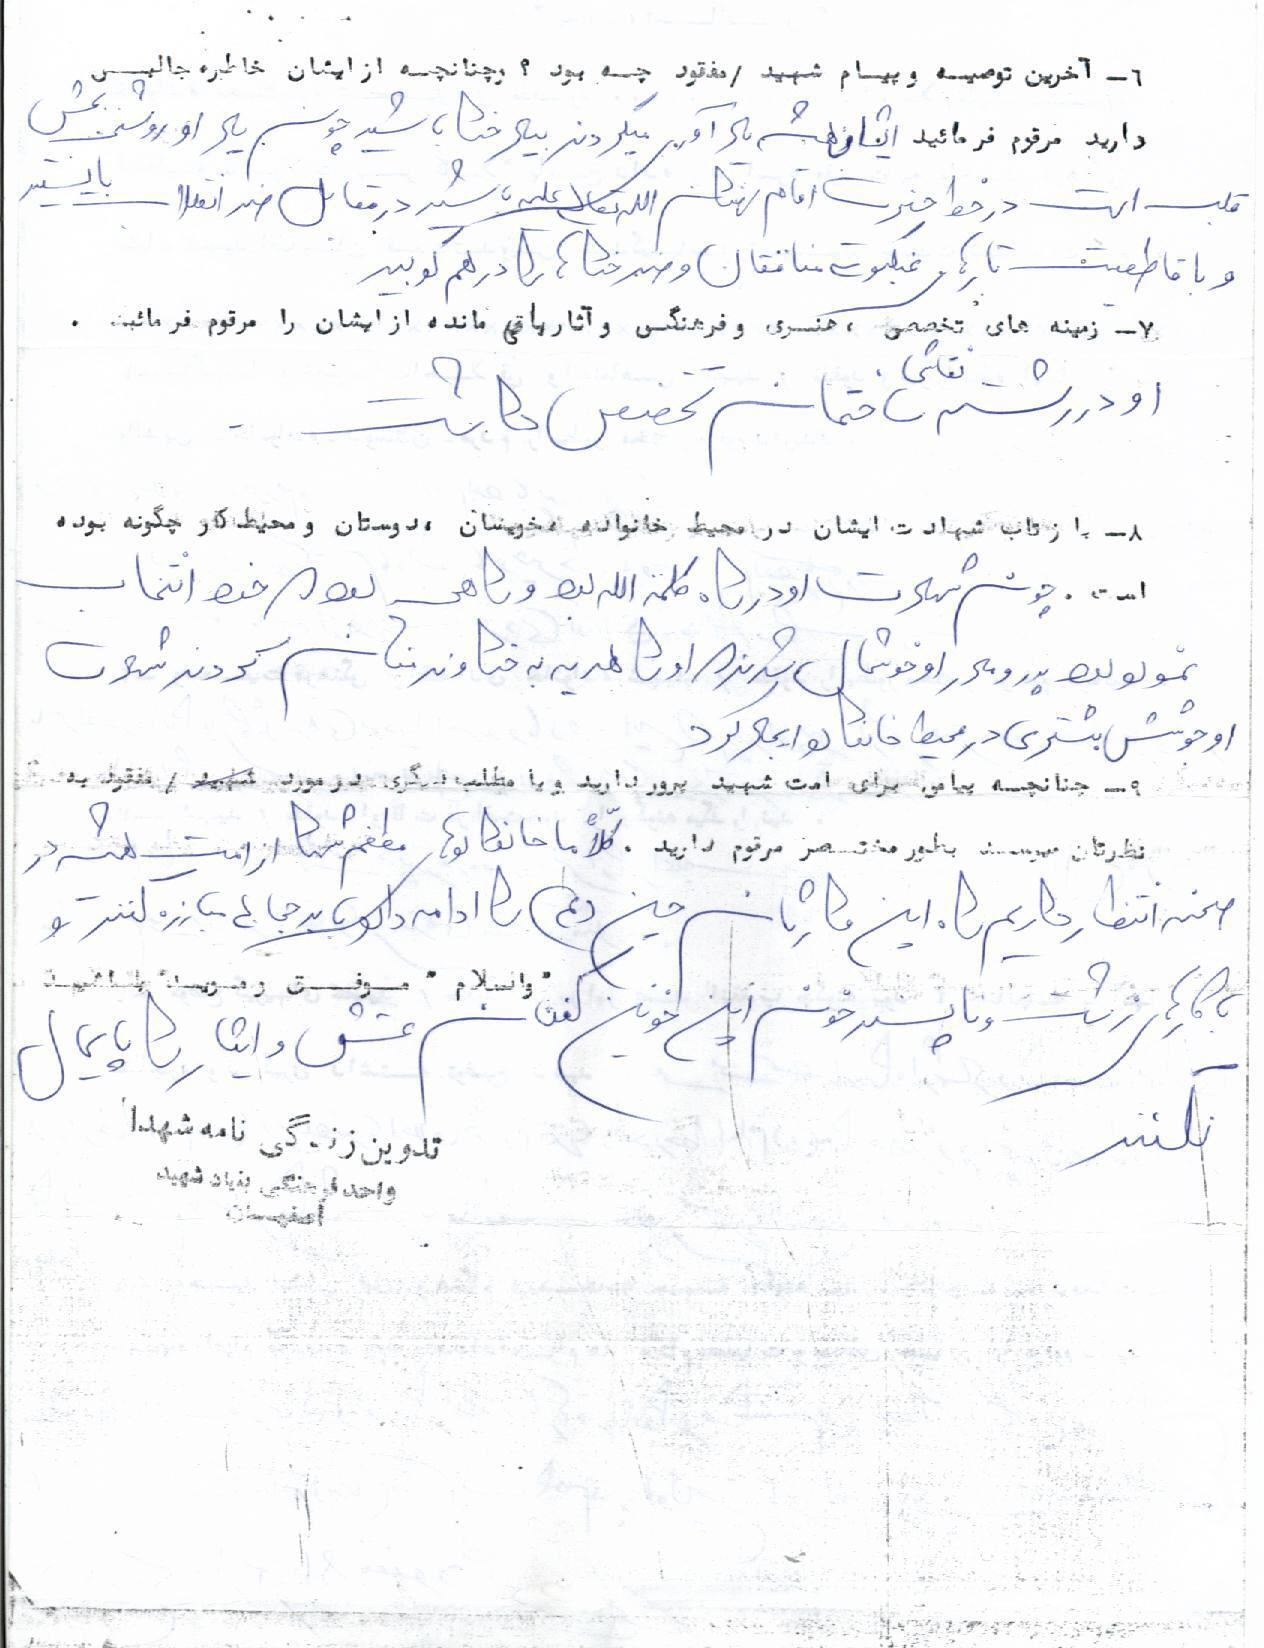 ٦- آخرین توصیه و پیام شهید /مفقود چه بود ؟ وچنانچه از ایشان خاطره جالبی
دارید مرقوم فرمائید ایشان همیشه یاد آوری میکردند بیاد خدا باشید چون یاد او روشنی بخش
قلب است در خط حضرت امام خمینی رضوان الله تعالی علیه باشید در مقابل ضد انقلاب بایستید
و با قاطعیت تارهای عنکبوت منافقان و ضد خداها را در هم کوبید
٧- زمینه های تخصصی ، هنری و فرهنگی و آثار باقی مانده از ایشان را مرقوم فرمائید .
او در رشته نقاشی ساختمان تخصص داشت .
٨- باز تاب شهادت ایشان در محیط خانواده ، خویشان ، دوستان و محیط کار چگونه بوده
است . چون شهادت او در راه کلمة الله بود و راهی بود که خود انتخاب
نموده بود پدر و مادر او خوشحال شدند که او را هدیه به خداوند منان کردند شهادت
او جوشش بیشتری در محیط خانواده ایجاد کرد
٩- چنانچه پیامی برای امت شهید پرور دارید و یا مطلب دیگری در مورد شهید / مفقود به
نظرتان میرسد بطور مختصر مرقوم دارید . کلاً ما خانواده های معظم شهدا از امت همیشه در
صحنه انتظار داریم راه این عزیزان را ادامه داده با بد حجابی مبارزه کنند و
با کارهای زشت و ناپسند خون این خونین کفنان عشق و ایثار را پایمال
"والسلام" موفق و موید باشید
نکنند
تدوین زندگی نامه شهدا
واحد فرهنگی بنیاد شهید
اصفهان